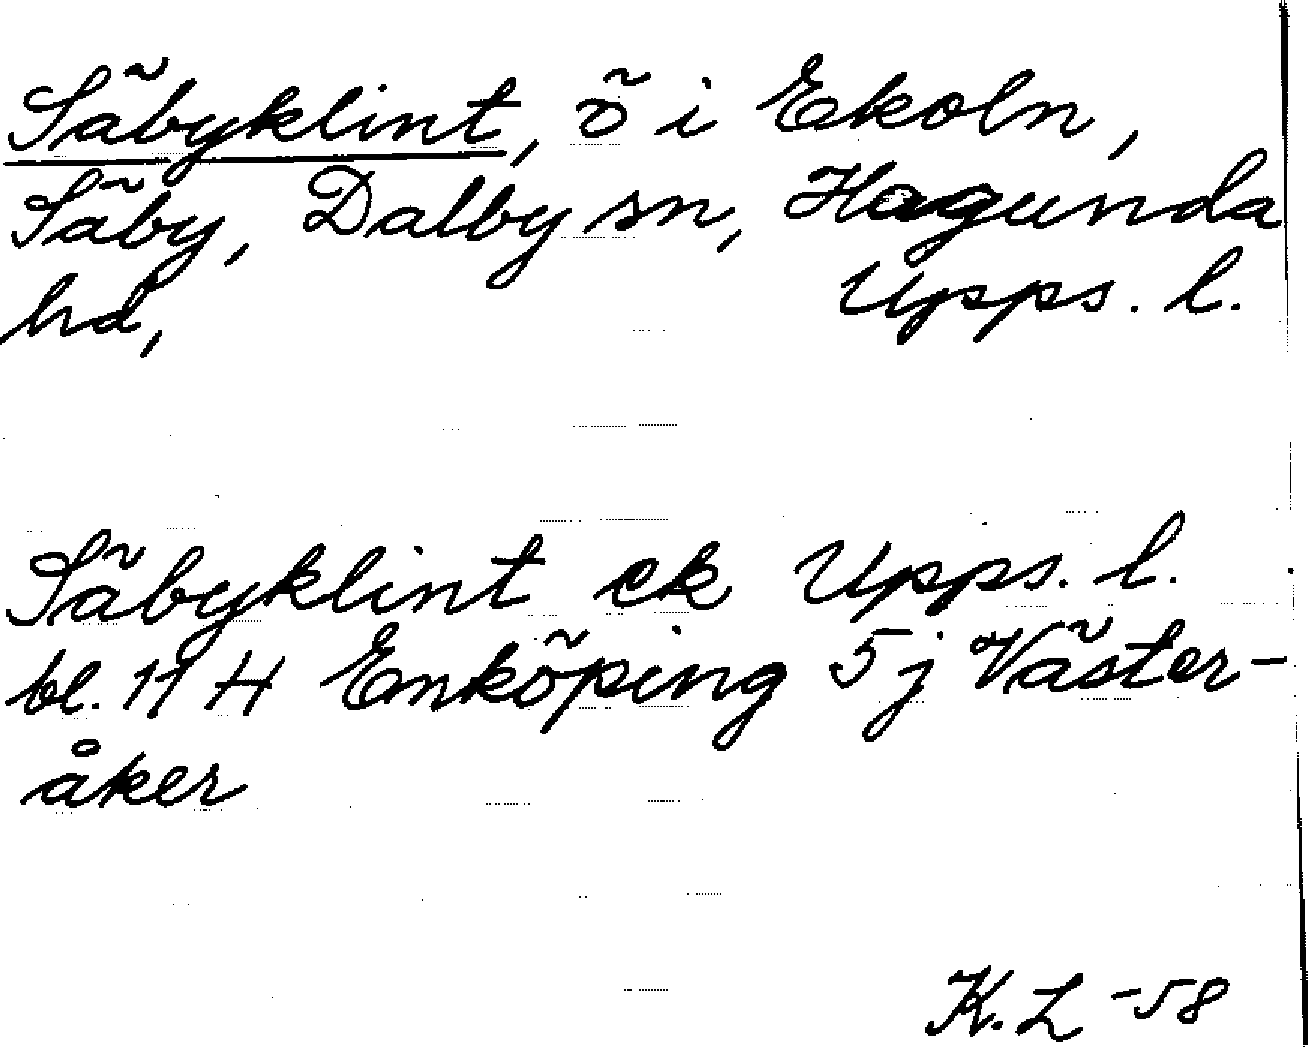 Säbyklint, ö i Ekoln,
Säby, Dalby sn, Hagunda
hd, Upps. l.
Säbyklint ek Upps. l.
bl. 11 H Enköping 5 j Väster-
åker
K. L -58